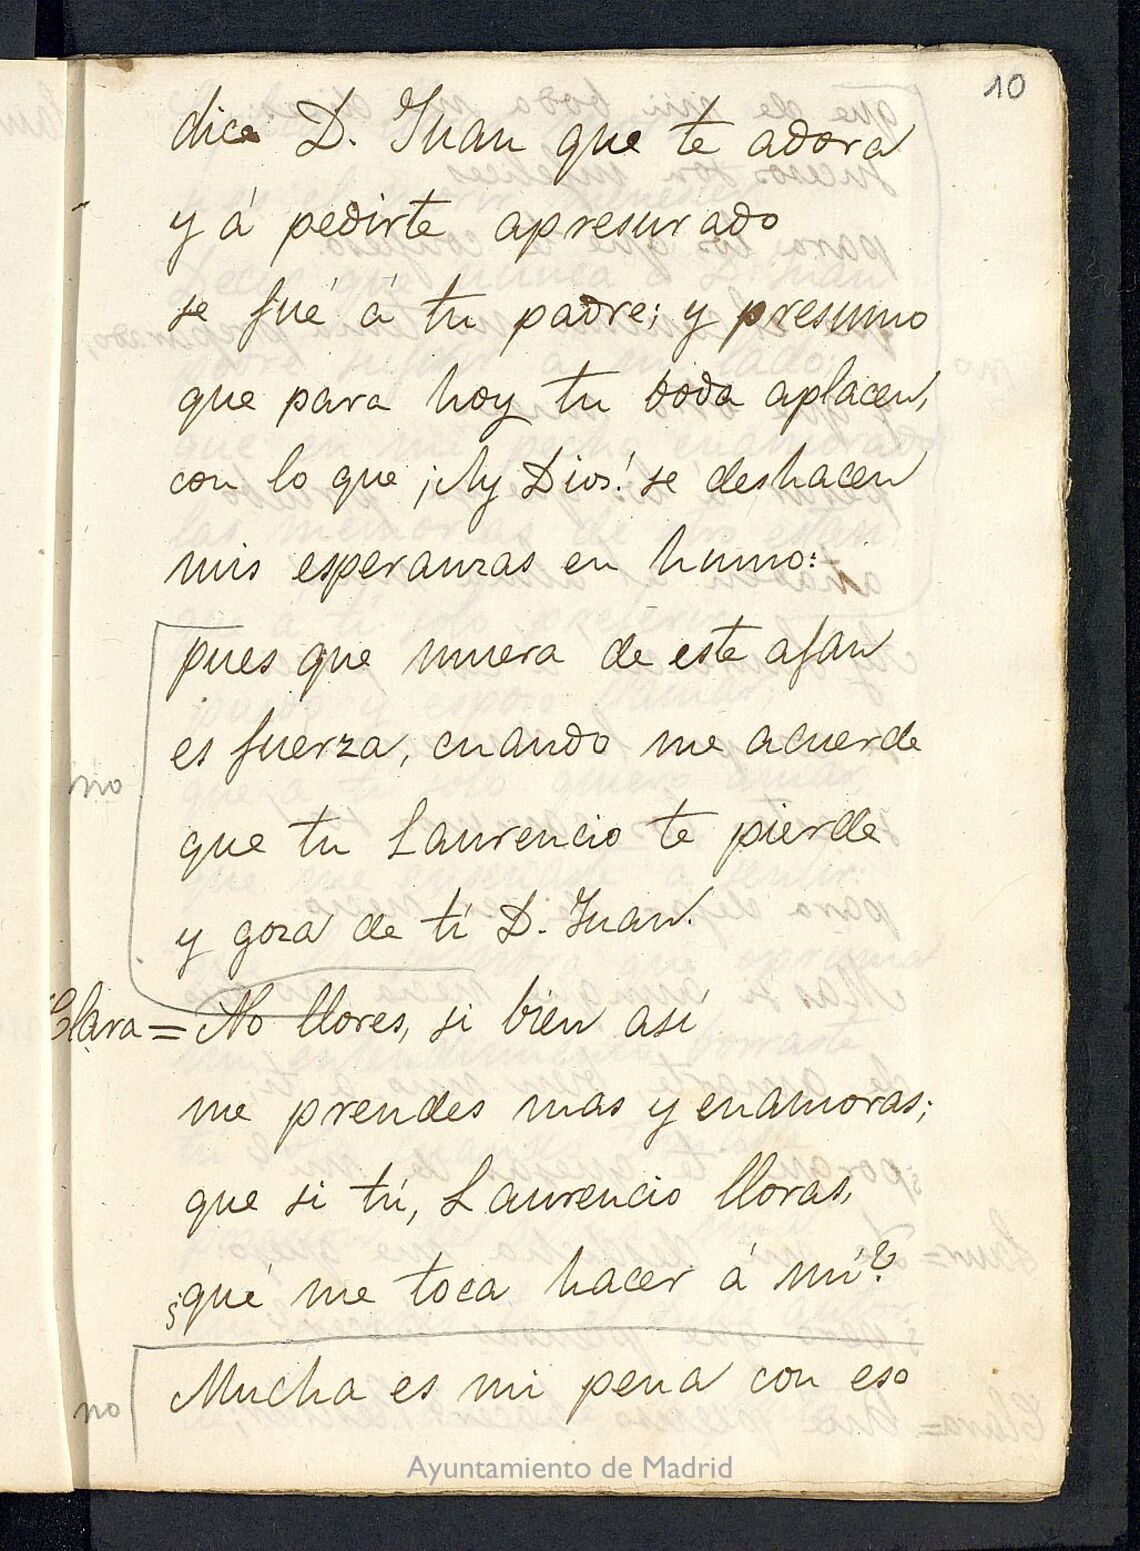 10
dice D. Juan que te adora
y á pedirte apresurado
se fué á tu padre; y presumo
que para hoy tu boda aplacen,
con lo que ¡Ay Dios! se deshacen
mis esperanzas en humo:
pues que muera de este afan
es fuerza, cuando me acuerde
no
que tu Laurencio te pierde
y goza de tí D. Juan.
Clara = No llores, si bien así
me prendes mas y enamoras;
que si tú, Laurencio lloras,
¿qué me toca hacer á mí?
Mucha es mi pena con eso
no
Ayuntamiento de Madrid